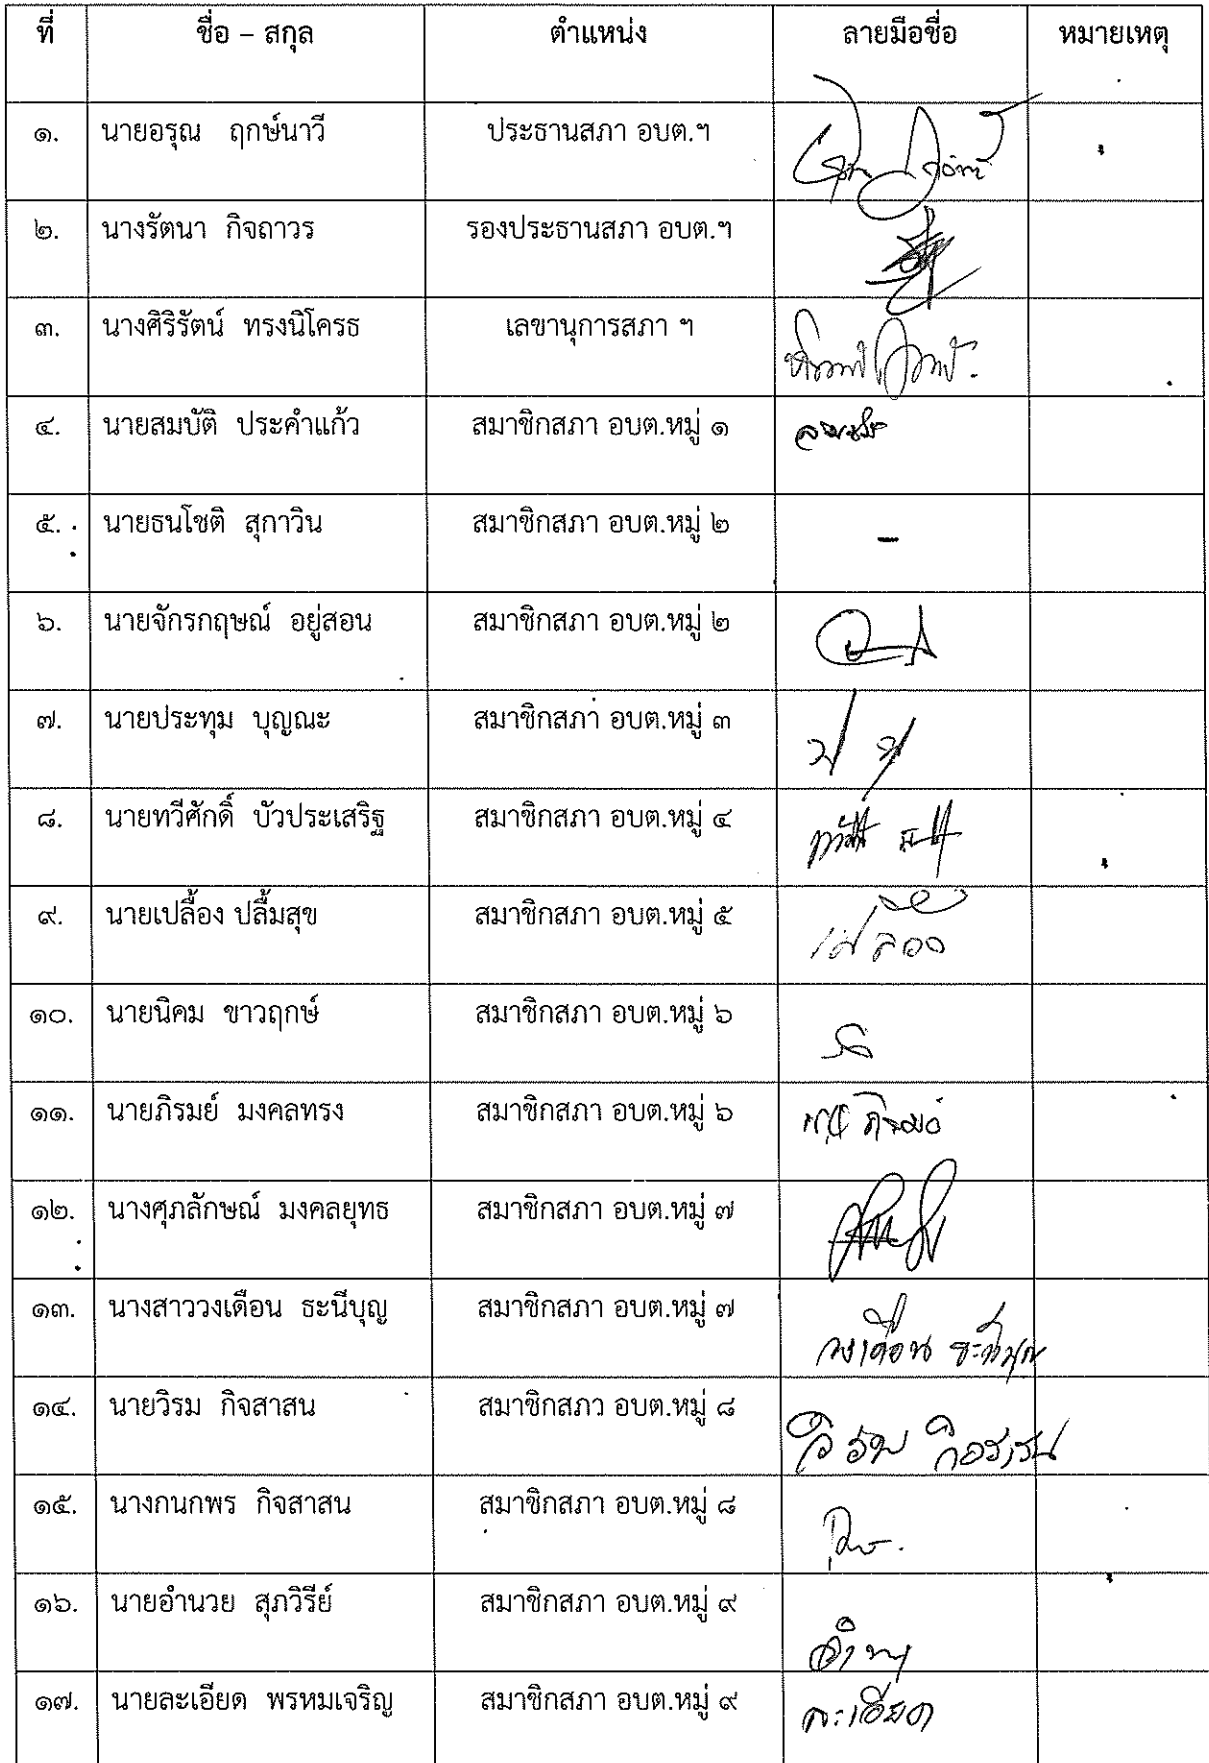 ที่ ชื่อ – สกุล ตำแหน่ง ลายมือชื่อ หมายเหตุ
๑. นายอรุณ ฤกษ์นาวี ประธานสภา อบต.ฯ
๒. นางรัตนา กิจถาวร รองประธานสภา อบต.ฯ
๓. นางศิริรัตน์ ทรงนิโครธ เลขานุการสภา ฯ
๔. นายสมบัติ ประคำแก้ว สมาชิกสภา อบต.หมู่ ๑
๕. นายธนโชติ สุกาวิน สมาชิกสภา อบต.หมู่ ๒ -
๖. นายจักรกฤษณ์ อยู่สอน สมาชิกสภา อบต.หมู่ ๒
๗. นายประทุม บุญณะ สมาชิกสภา อบต.หมู่ ๓
๘. นายทวีศักดิ์ บัวประเสริฐ สมาชิกสภา อบต.หมู่ ๔
๙. นายเปลื้อง ปลื้มสุข สมาชิกสภา อบต.หมู่ ๕ เปลื้อง
๑๐. นายนิคม ขาวฤกษ์ สมาชิกสภา อบต.หมู่ ๖
๑๑. นายภิรมย์ มงคลทรง สมาชิกสภา อบต.หมู่ ๖ ภิรมย์
๑๒. นางศุภลักษณ์ มงคลยุทธ สมาชิกสภา อบต.หมู่ ๗
๑๓. นางสาววงเดือน ธะนีบุญ สมาชิกสภา อบต.หมู่ ๗ วงเดือน ธะนีบุญ
๑๔. นายวิรม กิจสาสน สมาชิกสภา อบต.หมู่ ๘ วิรม กิจสาสน
๑๕. นางกนกพร กิจสาสน สมาชิกสภา อบต.หมู่ ๘
๑๖. นายอำนวย สุภวิรีย์ สมาชิกสภา อบต.หมู่ ๙
๑๗. นายละเอียด พรหมเจริญ สมาชิกสภา อบต.หมู่ ๙ ละเอียด